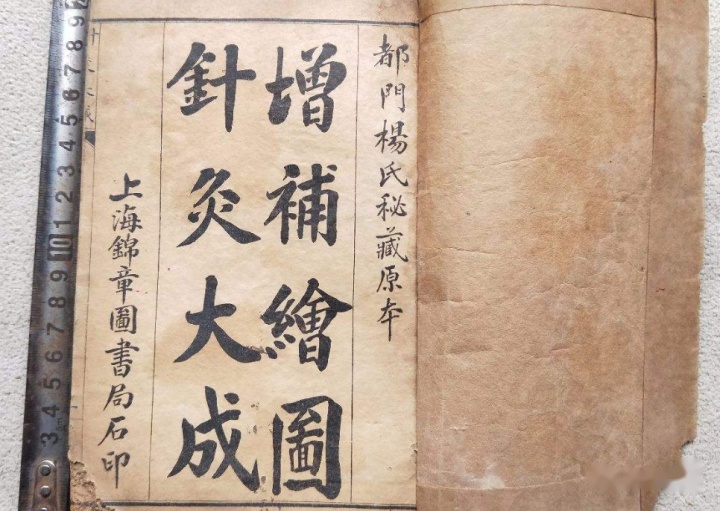 都門楊氏秘藏原本
增補繪圖
針灸大成
上海錦章圖書局石印
9 8 7 6 5 4 3 2 1 10 9 8 7 6 5 4 3